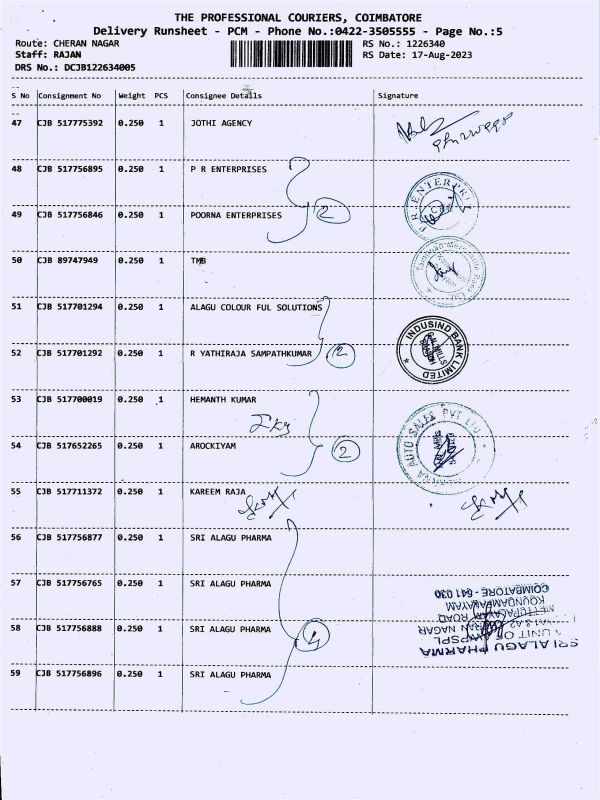 THE PROFESSIONAL COURIERS, COIMBATORE
Delivery Runsheet - PCM - Phone No.:0422-3505555 - Page No.:5
Route: CHERAN NAGAR RS No.: 1226340
Staff: RAJAN RS Date: 17-Aug-2023
DRS No.: DCJB122634005
S No Consignment No Weight PCS Consignee Details Signature
47 CJB 517775392 0.250 1 JOTHI AGENCY
48 CJB 517756895 0.250 1 P R ENTERPRISES
49 CJB 517756846 0.250 1 POORNA ENTERPRISES 2
P.R. ENTERPRI
50 CJB 89747949 0.250 1 TMB
51 CJB 517701294 0.250 1 ALAGU COLOUR FUL SOLUTIONS
52 CJB 517701292 0.250 1 R YATHIRAJA SAMPATHKUMAR 2
INDUSIND BANK LIMITED
53 CJB 517700019 0.250 1 HEMANTH KUMAR
54 CJB 517652265 0.250 1 AROCKIYAM 2
AUTO SALES PVT LTD
55 CJB 517711372 0.250 1 KAREEM RAJA
56 CJB 517756877 0.250 1 SRI ALAGU PHARMA
57 CJB 517756765 0.250 1 SRI ALAGU PHARMA
58 CJB 517756888 0.250 1 SRI ALAGU PHARMA 4
59 CJB 517756896 0.250 1 SRI ALAGU PHARMA
SRI ALAGU PHARMA
UNIT OF
NAGAR
METTUPALAYAM ROAD
KOUNDAMPALAYAM
COIMBATORE - 641 030